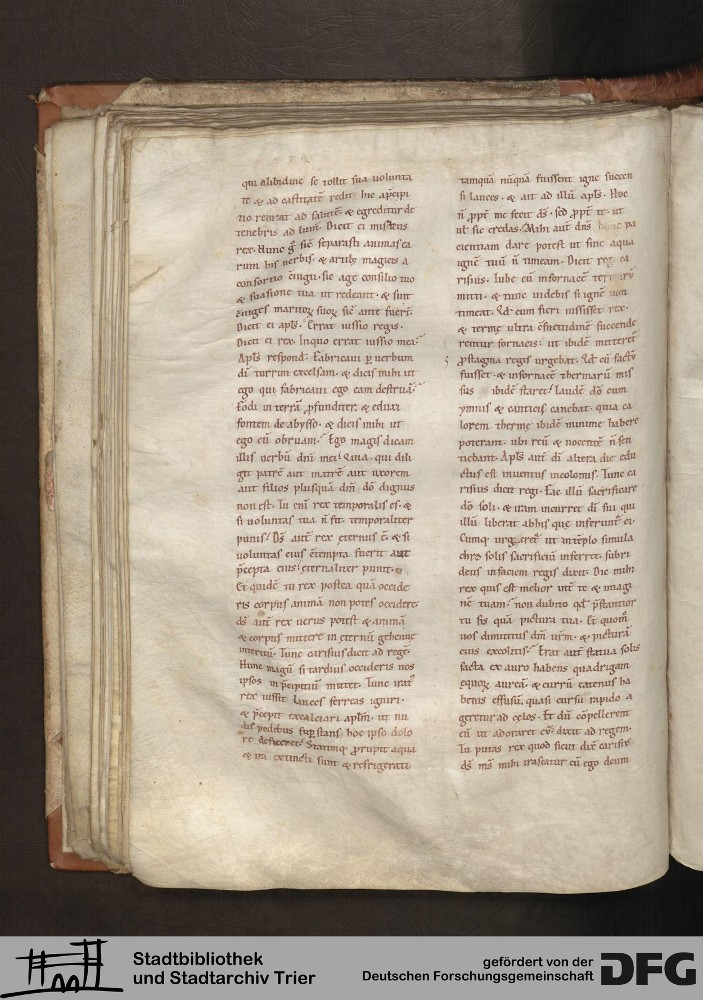 qui alibidine se tollit sua uolunta
te & ad castitatē redit hic a p̄cipi
tio remeat ad salutē· & egreditur de
tenebris ad lum̄. Dicit ei misdeus
rex· Hunc g̊ sic̄ separasti animas ea
rum his uerbis· & artib; magicis a
consortio c̄iugū· sic age consilio tuo
& suasione tua ut redeant· & sint
c̄iuges maritoꝝ suoꝝ sic̄ ante fuerī·
Dicit ei apls· Errat iussio regis·
Dicit ei rex· Inquo errat iussio mea?
Apls respond· Fabricaui ꝑ uerbum
dī turrim excelsam· & dicis mihi ut
ego qui fabricaui ego eam destruā·
Fodi in terrā ꝓfunditer· & eduxi
fontem de abysso· & dicis mihi ut
ego eū obruam· Ego magis dicam
illis uerbū dn̄i mei· Quia qui dili
git patrē aut matrē aut uxorem
aut filios plusquā dm̄· dō dignus
non est· Tu eni rex temporalis es· &
si uoluntas tua n̄ fit· temporaliter
punis· Ds̄ aut̄ rex eternus ē· & si
uoluntas eius c̄tempta fuerit aut
p̄cepta eius· eternaliter punit·
Et quidē tu rex postea quā occide
ris corpus animā non potes occidere·
ds̄ aut̄ rex uerus potest & animā
& corpus mittere in eternū gehenne
interitū· Tunc carisius dicit ad regē·
Hunc magū si tardius occideris nos
ipsos in p̄cipitiū mittet· Tunc irat᾿
rex iussit lances ferreas iguiri·
& p̄cepit excalciari aplm̄· ut nu
dis pedibus suꝑstans hoc ipso dolo
re deficeret· Statimq; ꝓrupit aqua
& ita extincti sunt & refrigerati
tamquā nūquā fuissent igne succen
si lances· & ait ad illū apls· Hoc
n̄ ꝓpt̄ me fecit ds̄· sed ꝓpt̄ te· ut
ul᾿ sic credas· Mihi aut̄ dn̄s hanc pa
cientiam dare potest ut sine aqua
ignē tuū n̄ timeam· Dicit regi ca
risius· Iube eū infornacē termarū
mitti· & tunc uidebis si ignē non
timeat· Qd̄ cum fieri iussisset rex·
& terme ultra c̄suetudinē succende
rentur fornaces· ut ibidē mitteret᾿
ꝓstagma regis urgebat· Qd̄ cū factū
fuisset· & infornacē thermarū mis
sus ibidē staret· laudē dō cum
ymnis & canticis canebat· quia ca
lorem therme ibidē minime habere
poterant· ubi reū & nocentē n̄ sen
tiebant· Apls aut̄ dī altera die edu
ctus est inuentus incolomis· Tunc ca
risius dicit regi· Fac illū sacrificare
dō soli· & iram incurret dī sui qui
illū liberat abhis que inferunt᾿ ei·
Cumq; urgeret᾿ ut in tēplo simula
chro solis sacrificiū inferret· subri
dens infaciem regis dixit· Dic mihi
rex quis est melior utr̄ te & imagi
nē tuam· non dubito qd̄ p̄stantior
tu sis quā pictura tua· Et quom̊
uos dimittitis dm̄ ur̄m· & picturā
eius excolitis· Erat aut̄ statua solis
facta ex auro habens quadrigam
equoꝝ aureā· & currū catenis ha
benis effusū· quasi cursu rapido a
geretur ad celos· Et dū cōpellerent
eū ut adoraret eū· dixit ad regem·
Tu putas rex quod sicut dix̄ carisi᾿
ds̄ ms̄ mihi irascatur cū ego deum
Stadtbibliothek
und Stadtarchiv Trier
gefördert von der
Deutschen Forschungsgemeinschaft
DFG